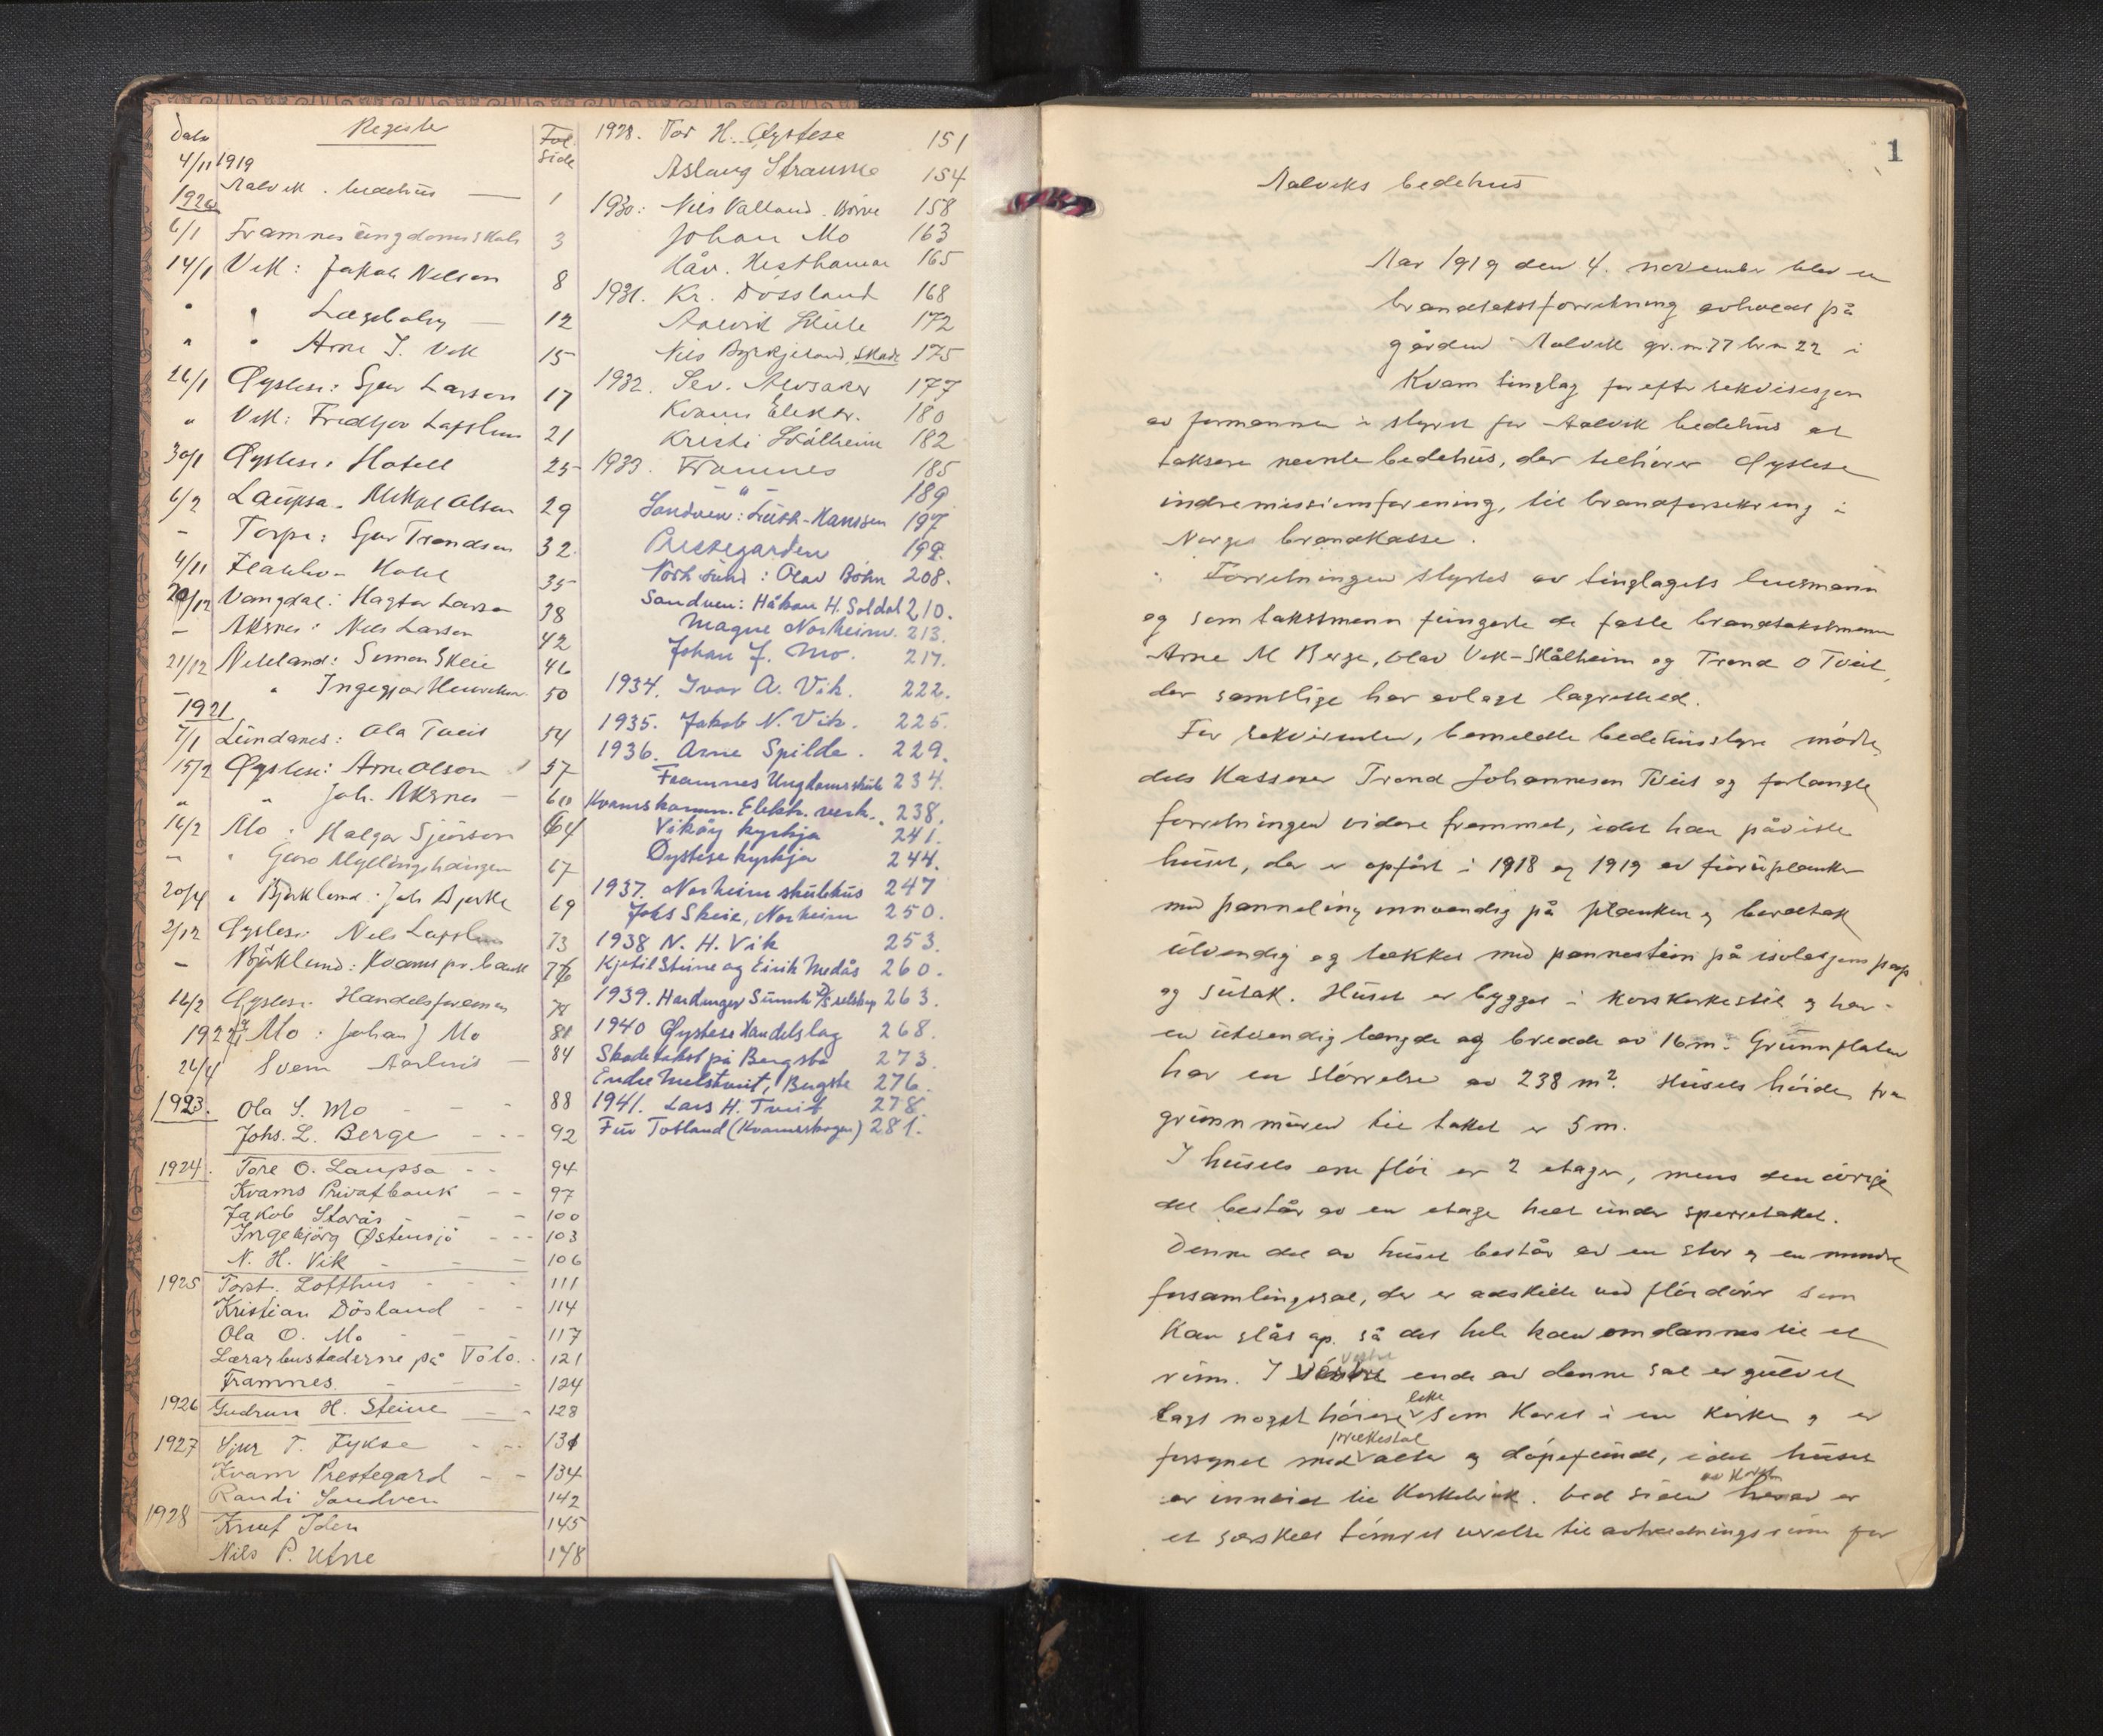 Dato Register Fol. Side
4/11 1919
Aalvik bedehus — 1
1920
6/1 Framnes ungdomsskole 3
14/1 Vik: Jakob Nelson 8
" " Lægebolig — 12
" " Arne J. Vik 15
26/1 Øystese: Sjur Larson 17
" Vik: Fredtjov Laffhus 21
30/1 Øystese: Hotell 25
6/2 Laupsa. Mikkel Olson 29
— Torpe: Sjur Trondson 32
4/11 Hotel 35
20/12 Vangdal: Hagtor Larson 38
— Aksnes: Nils Larson 42
21/12 Neteland: Simon Skeie 46
— " Ingegjer 50
1921
7/1 Lundanes: Ola Tveit 54
15/2 Øystese: Arne Olson 57
" " Joh. Aksnes — 60
16/2 Mo: Halgor Sjurson 64
— " Guro Myllingshaugen 67
20/4 " Bjørklund: Joh Bjerke 69
2/12 Øystese Nils Laffhus 73
— Bjørklund: Kvams pr. bank 76
16/2 Øystese. Handelsforening 78
1922 Mo: Johan J Mo 81
24/4 Svein Aarhus — 84
1923. Ola S. Mo - - - 88
Johs. L. Berge - - - 92
1924. Tore O. Laupsa - - 94
Kvams Privatbank - - 97
Jakob Storås - - 100
Ingebjörg Østensjö - - - 103
N. H. Vik - - - 106
1925 Torst. Lofthus - - - 111
Kristian Dösland - - 114
Ola O. Mo - - - 117
Lærarbustaderne på Tolo. 121
Framnes. - - - 124
1926 Gudrun H. Steine - - 128
1927 Sjur T. Fykse - - - 131
Kvam Prestegard - - 134
Randi Sandven 142
1928 Knut Iden 145
Nils P. Utne 148
1928. Tor H. Øystese 151
Aslaug Straume 154
1930: Nils Valland. Börve 158
Johan Mo 163
Håv. Hesthamar 165
1931. Kr. Dössland 168
Aalvik Skule 172
Nils Byrkjeland, Skade 175
1932. Sev. Alvsaker 177
Kvams Elektr. 180
Kristi Skålheim 182
1933. Framnes 185
" 189
Sandven: Hanssen 197
Prestegarden 199.
Norheimsund: Olav Böhn 208.
Sandven: Håkon H. Soldal 210.
Magne Norheim. 213.
Johan J. Mo. 217.
1934. Ivar A. Vik. 222.
1935. Jakob N. Vik. 225.
1936. Arne Spilde. 229.
Framnes Ungdomsskule 234.
Kvams komm. Elektr. verk. 238.
Viköy kyrkja 241.
Öystese kyrkja 244.
1937. Norheim skulehus 247
Johs Skeie, Norheim 250.
1938 N. H. Vik 253.
Kjetil Steine og Eirik Medås 260.
1939. Hardanger Sunnh D/S selskap 263.
1940 Øystese Handelslag 268.
Skadetakst på Bergstø 273.
Endre Melstveit, Bergstø 276.
1941. Lars H. Tveit 278.
Finn Totland (Kvamsskogen) 281.
1
Aalviks bedehus
Aar 1919 den 4. november blev en
brandtakstforretning avholdt på
gården Aalvik gr. nr 77 br nr 22 i
Kvam tinglag for efter rekvisisjon
av formannen i styret for Aalvik bedehus at
taksere nevnte bedehus, der tilhører Øystese
indremissionsforening, til brandforsikring i
Norges brandkasse.
Forretningen styrtes av tinglagets lensmann
og som takstmenn fungerte de faste brandtakstmenn
Arne M Berge, Olav Vik-Skålheim og Trond O Tveit,
der samtlige har avlagt lagretteed.
For rekvirenten, bemeldte bedehusstyre mødte
dets kasserer Trond Johannesen Tveit og forlangte
forretningen videre fremmet, idet han påviste
huset, der er opført i 1918 og 1919 av furuplanker
med panneling innvendig på planken og bordtak
utvendig og tækket med pannestein på isolasjonspap
og sutak. Huset er bygget i korskirkestil og har
en utvendig længde og bredde av 16 m. Grunnflaten
har en størrelse av 238 m². Husets høide fra
grunnmuren til taket er 5 m.
I husets ene fløi er 2 etager, mens den øvrige
del består av en etage helt under sperretaket.
Denne del av huset består av en stor og en mindre
forsamlingssal, der er adskilt ved fløidører som
kan slås op. så det hele kan omdannes til et
rum. I vestre ende av denne sal er gulvet
lagt noget høiere like som koret i en kirke og er
forsynet med prekestol alter og døpefunt, idet huset
er innviet til kirkebruk. Ved siden av koret er
et særskilt tømret værelse til avtrædningsrum for